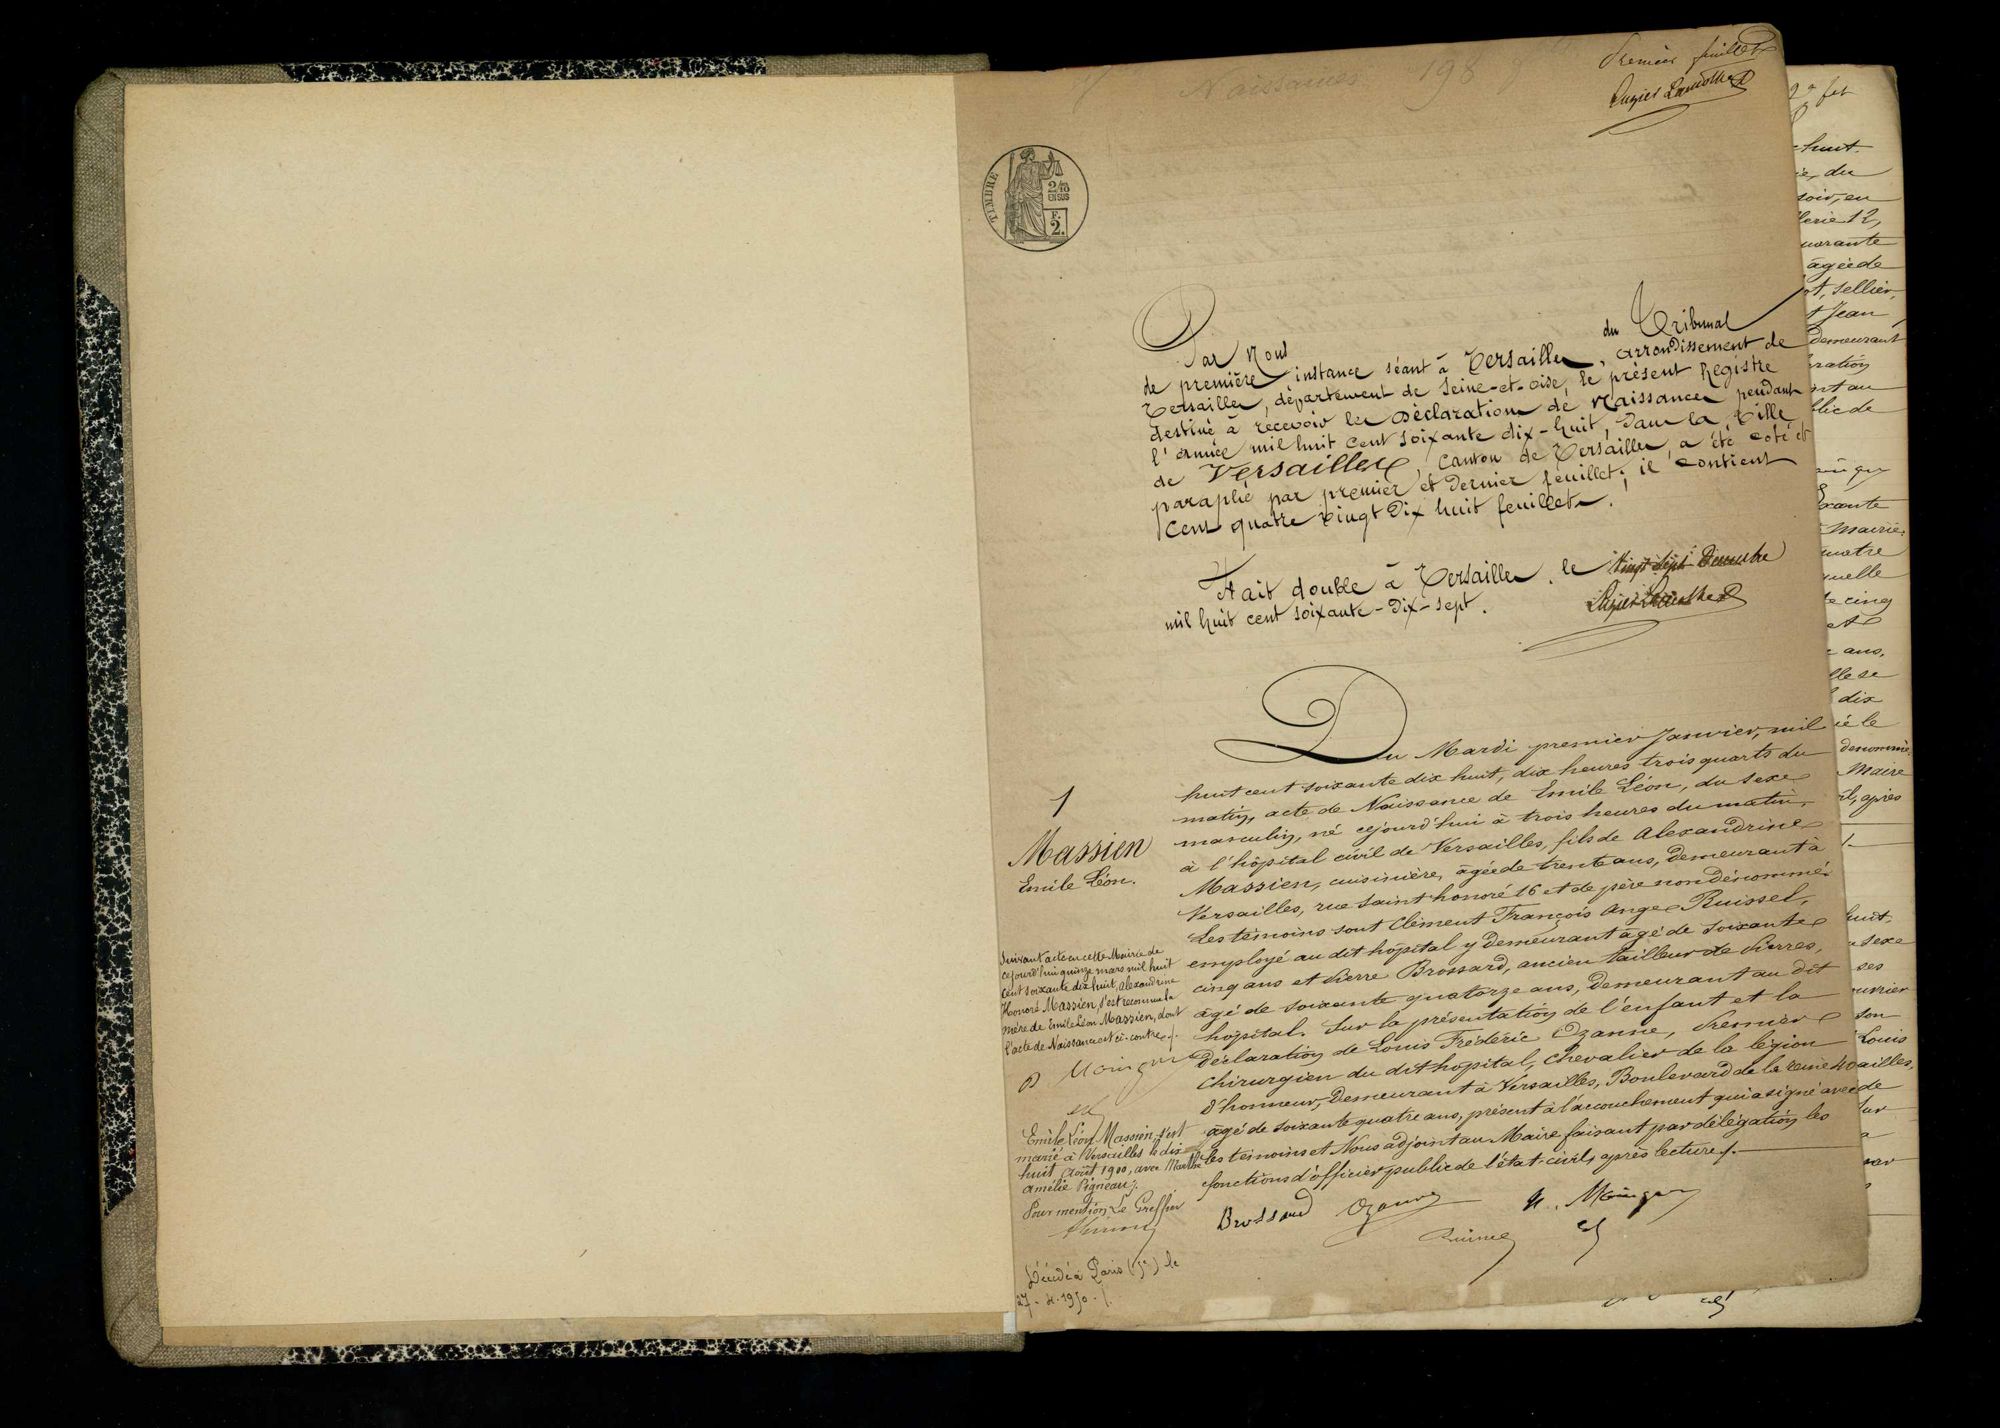 Naissances 198 f
Premier feuillet
TIMBRE
2/10
EN SUS
F.
2.
Par Nous du Tribunal
de première instance séant à Versailles, arrondissement de
Versailles, département de Seine-et-Oise, le présent Registre
destiné à recevoir les Déclarations de Naissances pendant
l'année mil huit cent soixante dix-huit, dans la Ville
de Versailles, canton de Versailles, a été coté et
paraphé par premier et dernier feuillet; il contient
Cent quatre vingt dix huit feuillets.
Fait double à Versailles, le vingt sept Décembre
mil huit cent soixante-dix-sept.
1
Massien
Emile Léon.
Du Mardi premier Janvier, mil
huit cent soixante dix huit, dix heures trois quarts du
matin, acte de Naissance de Emile Léon, du sexe
masculin, né cejourd'hui à trois heures du matin,
à l'hôpital civil de Versailles, fils de Alexandrine
Massien, cuisinière, âgée de trente ans, demeurant à
Versailles, rue Saint honoré 16 et de père non dénommé.
Les témoins sont Clément François Ange Ruissel,
employé au dit hôpital y demeurant âgé de soixante
cinq ans et Pierre Brossard, ancien tailleur de Pierres,
âgé de soixante quatorze ans, demeurant au dit
hôpital. Sur la présentation de l'enfant et la
déclaration de Louis Frédéric Ozanne, Premier
Chirurgien du dit hopital, Chevalier de la légion
d'honneur, demeurant à Versailles, Boulevard de la reine 40
âgé de soixante quatre ans, présent à l'accouchement qui a signé avec
les témoins et Nous adjoint au Maire faisant par délégation les
fonctions d'officier public de l'état-civil, après lecture./.
Brossard Ozanne
Suivant acte en cette Mairie de
cejourd'hui quinze mars mil huit
cent soixante dix huit, Alexandrine
Honoré Massien, s'est reconnue la
mère de Emile Léon Massien, dont
l'acte de Naissance est ci-contre./.
Emile Léon Massien s'est
marié à Versailles le dix
huit Août 1900, avec Marthe
Amélie Pigneau./.
Pour mention, Le Greffier
Décédé à Paris () le
27-4-1950./.
2e fet
huit
du
soir, en
12,
quarante
âgée de
sellier,
Jean
demeurant
au
de
Mairie
quatre
cinq
et
ans,
se
dix
le
dénommé
Maire
après
sexe
ses
son
Louis